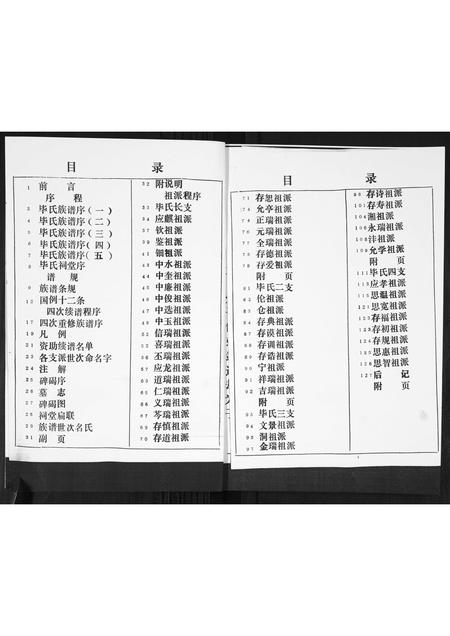 目 录
1 前 言
序 程
3 毕氏族谱序(一)
4 毕氏族谱序(二)
5 毕氏族谱序(三)
6 毕氏族谱序(四)
7 毕氏族谱序(五)
8 毕氏祠堂序
谱 规
9 族谱条规
12 国例十二条
四次续谱程序
17 四次重修族谱序
19 凡 例
21 资助续谱名单
23 各支派世次命名字
24 注 解
25 碑碣序
26 墓 志
27 碑碣图
28 祠堂扁联
29 族谱世次名氏
31 副 页
32 附说明
祖派程序
33 毕氏长支
34 应麒祖派
37 钦祖派
39 鉴祖派
41 钿祖派
43 中水祖派
44 中奎祖派
45 中廉祖派
46 中俊祖派
47 中选祖派
50 中玉祖派
52 信瑞祖派
53 喜瑞祖派
56 丕瑞祖派
57 应龙祖派
60 道瑞祖派
65 仁瑞祖派
66 义瑞祖派
67 芩瑞祖派
69 存慎祖派
70 存道祖派
目 录
71 存恕祖派
74 允亭祖派
74 正瑞祖派
76 元瑞祖派
77 全瑞祖派
78 存德祖派
79 存爱祖派
附 页
81 毕氏二支
82 伦祖派
83 仓祖派
84 存典祖派
85 存谟祖派
88 存训祖派
89 存诰祖派
90 宁祖派
91 祥瑞祖派
92 吉瑞祖派
附 页
93 毕氏三支
94 文景祖派
95 洞祖派
97 金瑞祖派
98 存诗祖派
101 存寿祖派
104 湘祖派
106 永瑞祖派
108 沣祖派
109 允学祖派
附 页
111 毕氏四支
113 应孝祖派
115 思温祖派
116 思宽祖派
123 存福祖派
123 存初祖派
124 存规祖派
125 思惠祖派
126 思智祖派
127 后 记
附 页